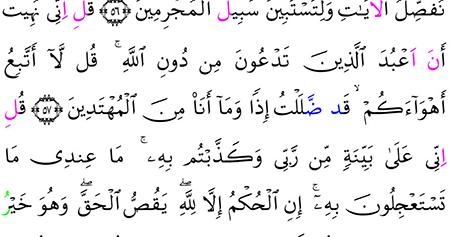 نُفَصِّلُ الَايَٰتِ وَلِتَسْتَبِينَ سَبِيلَ اَلْمُجْرِمِينَ ۝٥٦ قُلِ اِنِّى نُهِيتُ
أَنَ اَعْبُدَ اَلَّذِينَ تَدْعُونَ مِن دُونِ اِللَّهِ ۚ قُل لَّآ أَتَّبِعُ
أَهْوَآءَكُمْ ۙ قَد ضَّلَلْتُ إِذًا وَمَآ أَنَا۠ مِنَ اَلْمُهْتَدِينَ ۝٥٧ قُلِ
اِنِّى عَلَىٰ بَيِّنَةٍ مِّن رَّبِّى وَكَذَّبْتُم بِهِۦ ۚ مَا عِندِى مَا
تَسْتَعْجِلُونَ بِهِۦٓ ۚ إِنِ اِلْحُكْمُ إِلَّا لِلَّهِ ۖ يَقُصُّ اُلْحَقَّ ۖ وَهُوَ خَيْرُ